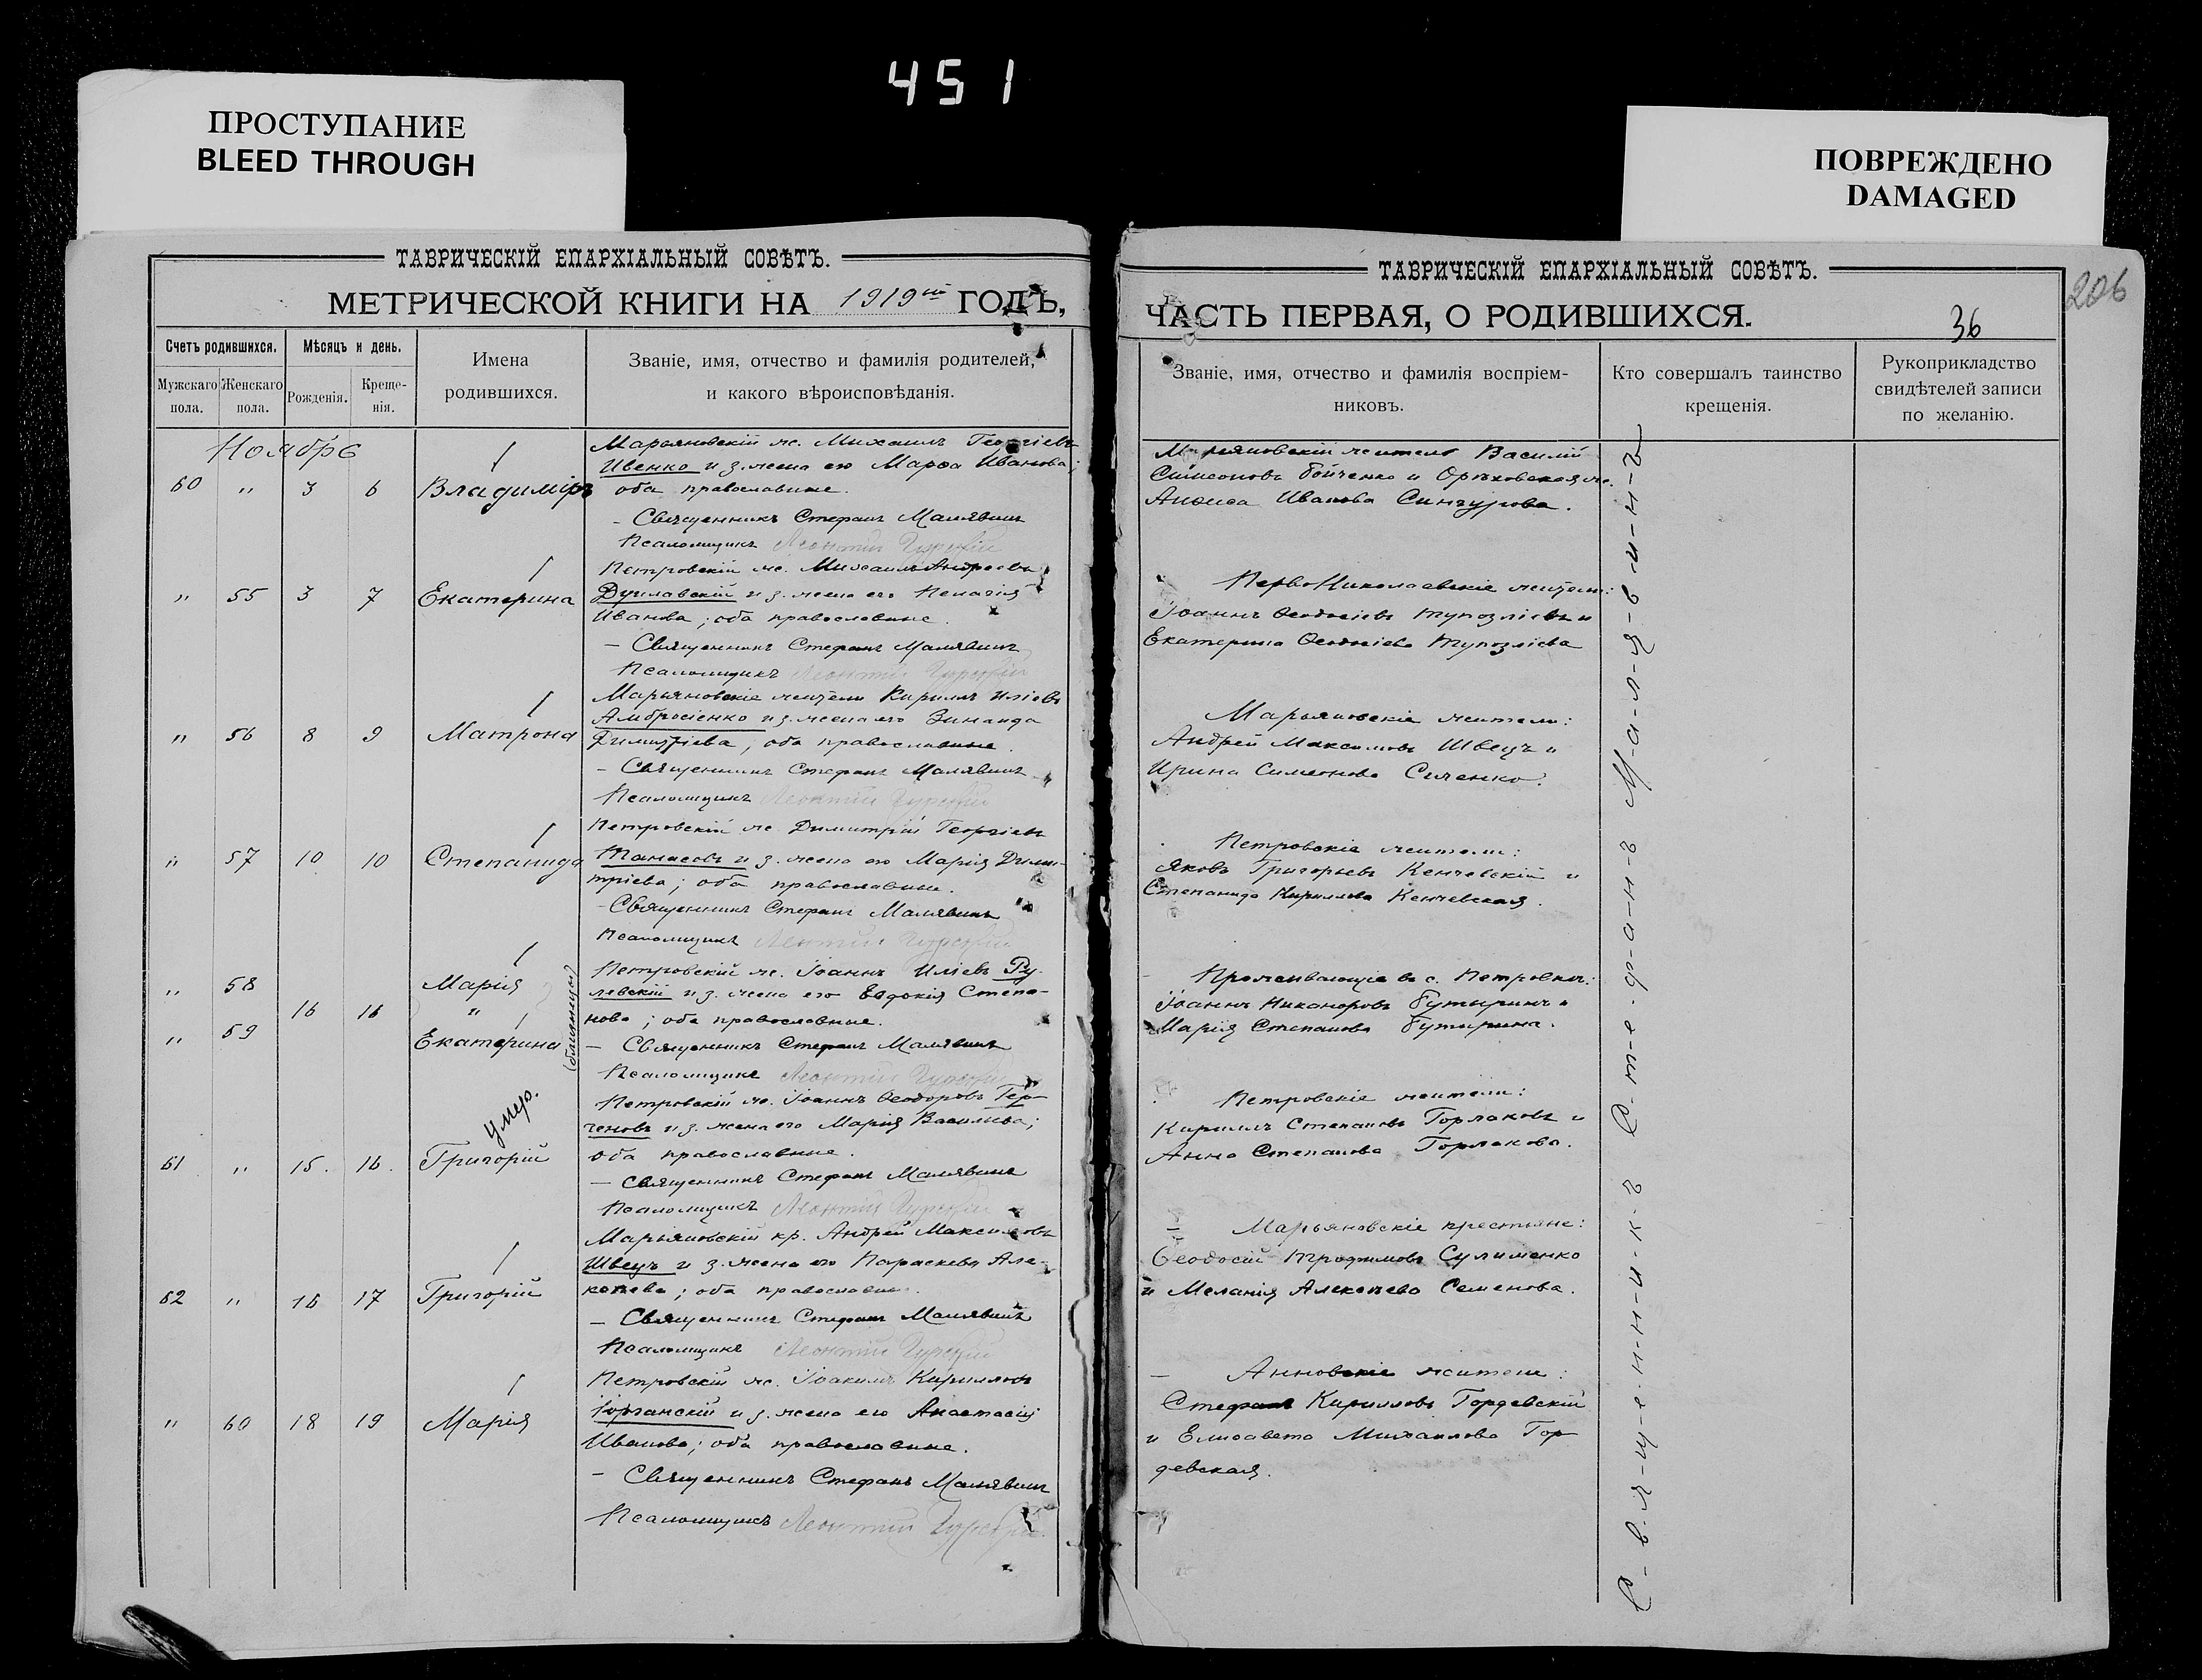 451
ПРОСТУПАНИЕ
BLEED THROUGH
ПОВРЕЖДЕНО
DAMAGED
ТАВРИЧЕСКІЙ ЕПАРХІАЛЬНЫЙ СОВѢТЪ.
МЕТРИЧЕСКОЙ КНИГИ НА 1919ый ГОДЪ,
Счетъ родившихся.
Мужскаго пола.
Женскаго пола.
Мѣсяцъ и день.
Рожденія.
Креще-
нія.
Имена
родившихся.
Званіе, имя, отчество и фамилія родителей,
и какого вѣроисповѣданія.
Ноябрь
60 " 3 6 Владиміръ
Марьяновскій ж. Михаилъ Георгіевъ
Ивенко и з. жена его Марѳа Иванова;
оба православные.
- Священникъ Стефанъ Малявинъ
Псаломщикъ Леонтій
" 55 3 7 Екатерина
Петровскій ж. Михаилъ Андреевъ
и з. жена его Пелагія
Иванова; оба православные.
- Священникъ Стефанъ Малявинъ
Псаломщикъ Леонтій
" 56 8 9 Матрона
Марьяновскіе жители Кириллъ Иліевъ
Амбросіенко и з. жена его Зинаида
Димитріева, оба православные.
- Священникъ Стефанъ Малявинъ
Псаломщикъ Леонтій
" 57 10 10 Степанида
Петровскій ж. Димитрій Георгіевъ
Танасовъ и з. жена его Марія Дими-
тріева; оба православные.
- Священникъ Стефанъ Малявинъ
Псаломщикъ Леонтій
" 58 Марія
16 16 "
" 59 Екатерина
(близнецы)
Петровскій ж. Іоаннъ Иліевъ Ру-
левскій и з. жена его Евдокія Степа-
нова; оба православные.
- Священникъ Стефанъ Малявинъ
Псаломщикъ Леонтій
умер.
61 " 15. 16. Григорій
Петровскій ж. Іоаннъ Ѳеодоровъ Гер-
геновъ и з. жена его Марія Васильева;
оба православные.
- Священникъ Стефанъ Малявинъ
Псаломщикъ Леонтій
62 " 16 17 Григорій
Марьяновскій кр. Андрей Максимовъ
Швецъ и з. жена его Параскева Але-
ксѣева; оба православные.
- Священникъ Стефанъ Малявинъ
Псаломщикъ Леонтій
" 60 18 19 Марія
Петровскій ж. Іоакимъ Кирилловъ
и з. жена его Анастасія
Иванова; оба православные.
- Священникъ Стефанъ Малявинъ
Псаломщикъ Леонтій
ТАВРИЧЕСКІЙ ЕПАРХІАЛЬНЫЙ СОВѢТЪ.
206
ЧАСТЬ ПЕРВАЯ, О РОДИВШИХСЯ.
36
Званіе, имя, отчество и фамилія воспріем-
никовъ.
Кто совершалъ таинство
крещенія.
Рукоприкладство
свидѣтелей записи
по желанію.
Марьяновскій житель Василій
Симеоновъ Бойченко и Орѣховская ж.
Анѳиса Иванова Сингурова.
ПервоНиколаевскіе жители:
Іоаннъ Ѳеодосіевъ Тупозліевъ и
Екатерина Ѳеодосіева Тупозліева
Марьяновскіе жители:
Андрей Максимовъ Швецъ и
Ирина Симеонова
Петровскіе жители:
Яковъ Григорьевъ Кенчевскій и
Степанида Кириллова Кенчевская.
Проживающіе въ с. Петровкѣ:
Іоаннъ Никаноровъ Бутыринъ и
Марія Степанова Бутырина.
Петровскіе жители:
Кириллъ Степановъ Горлаковъ и
Анна Степанова Горлакова.
Марьяновскіе крестьяне:
Ѳеодосій Трофимовъ Сулименко
и Меланія Алексѣева Семенова.
Анновскіе жители:
Стефанъ Кирилловъ Гордевскій
и Елисавета Михаилова Гор-
девская.
С-в-я-щ-е-н-н-и-к-ъ С-т-е-ф-а-н-ъ М-а-л-я-в-и-н-ъ